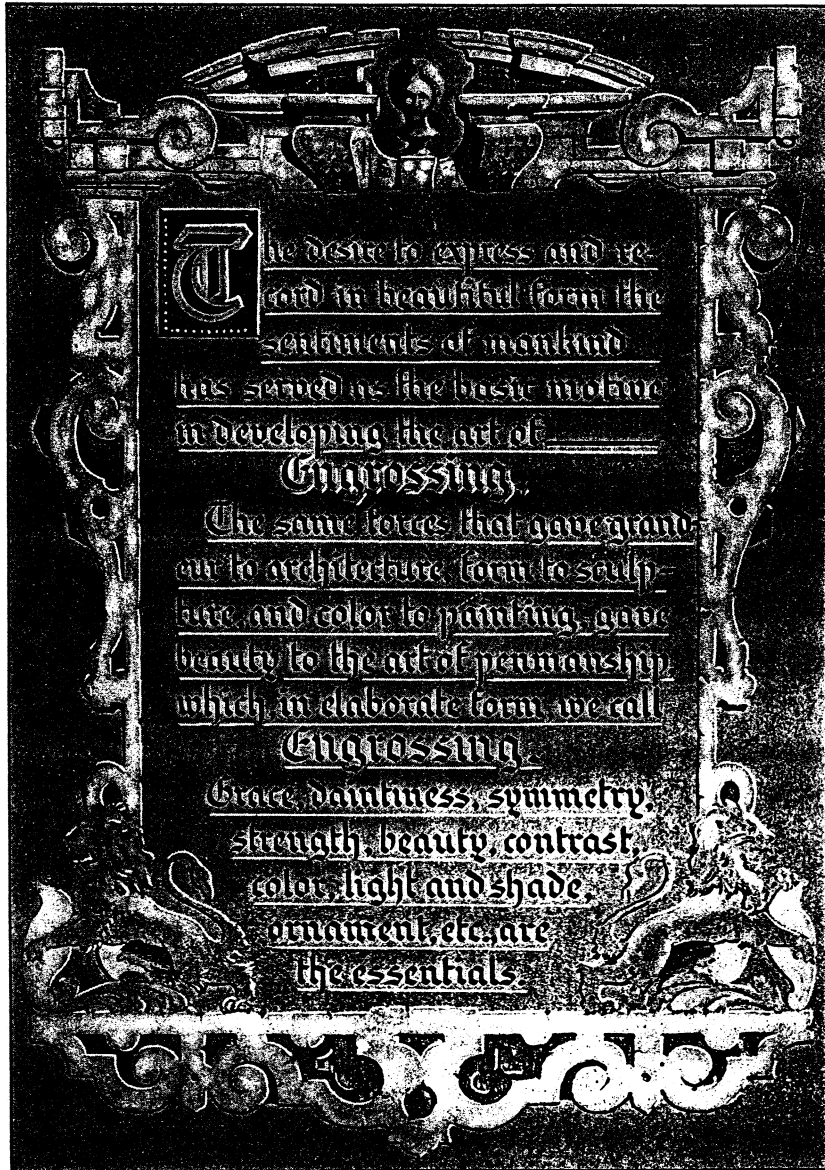 The desire to express and re-
cord in beautiful form the
sentiments of mankind
has served as the basic motive
in developing the art of
Engrossing.
The same forces that gave grand-
eur to architecture, form to sculp-
ture, and color to painting, gave
beauty to the art of penmanship
which, in elaborate form, we call
Engrossing.
Grace, daintiness, symmetry,
strength, beauty, contrast,
color, light and shade,
ornament, etc., are
the essentials.